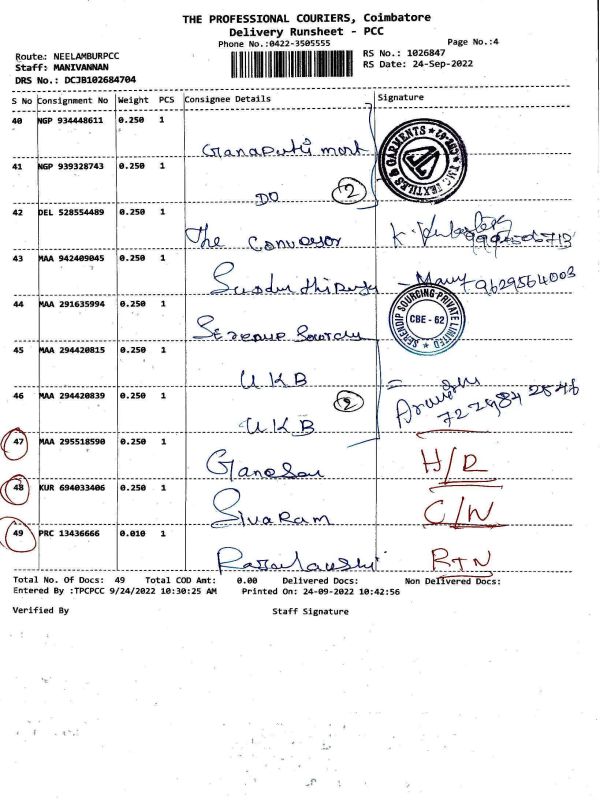 THE PROFESSIONAL COURIERS, Coimbatore
Delivery Runsheet - PCC
Phone No.:0422-3505555
Page No.:4
Route: NEELAMBURPCC
RS No.: 1026847
Staff: MANIVANNAN
RS Date: 24-Sep-2022
DRS No.: DCJB102684704
S No Consignment No Weight PCS Consignee Details Signature
40 NGP 934448611 0.250 1
Ganaputi mark
T.M.C. TEXTILES & GARMENTS
41 NGP 939328743 0.250 1
DO 2
42 DEL 528554489 0.250 1
The Conveyor
43 MAA 942409045 0.250 1
- Many 9629564003
44 MAA 291635994 0.250 1
SERENDIP SOURCING PRIVATE LIMITED
CBE - 62
45 MAA 294420815 0.250 1
UKB
46 MAA 294420839 0.250 1
UKB 2
47 MAA 295518590 0.250 1
Ganesan H/D
48 KUR 694033406 0.250 1
Sivaram C/N
49 PRC 13436666 0.010 1
RTN
Total No. Of Docs: 49 Total COD Amt: 0.00 Delivered Docs: Non Delivered Docs:
Entered By :TPCPCC 9/24/2022 10:30:25 AM Printed On: 24-09-2022 10:42:56
Verified By Staff Signature